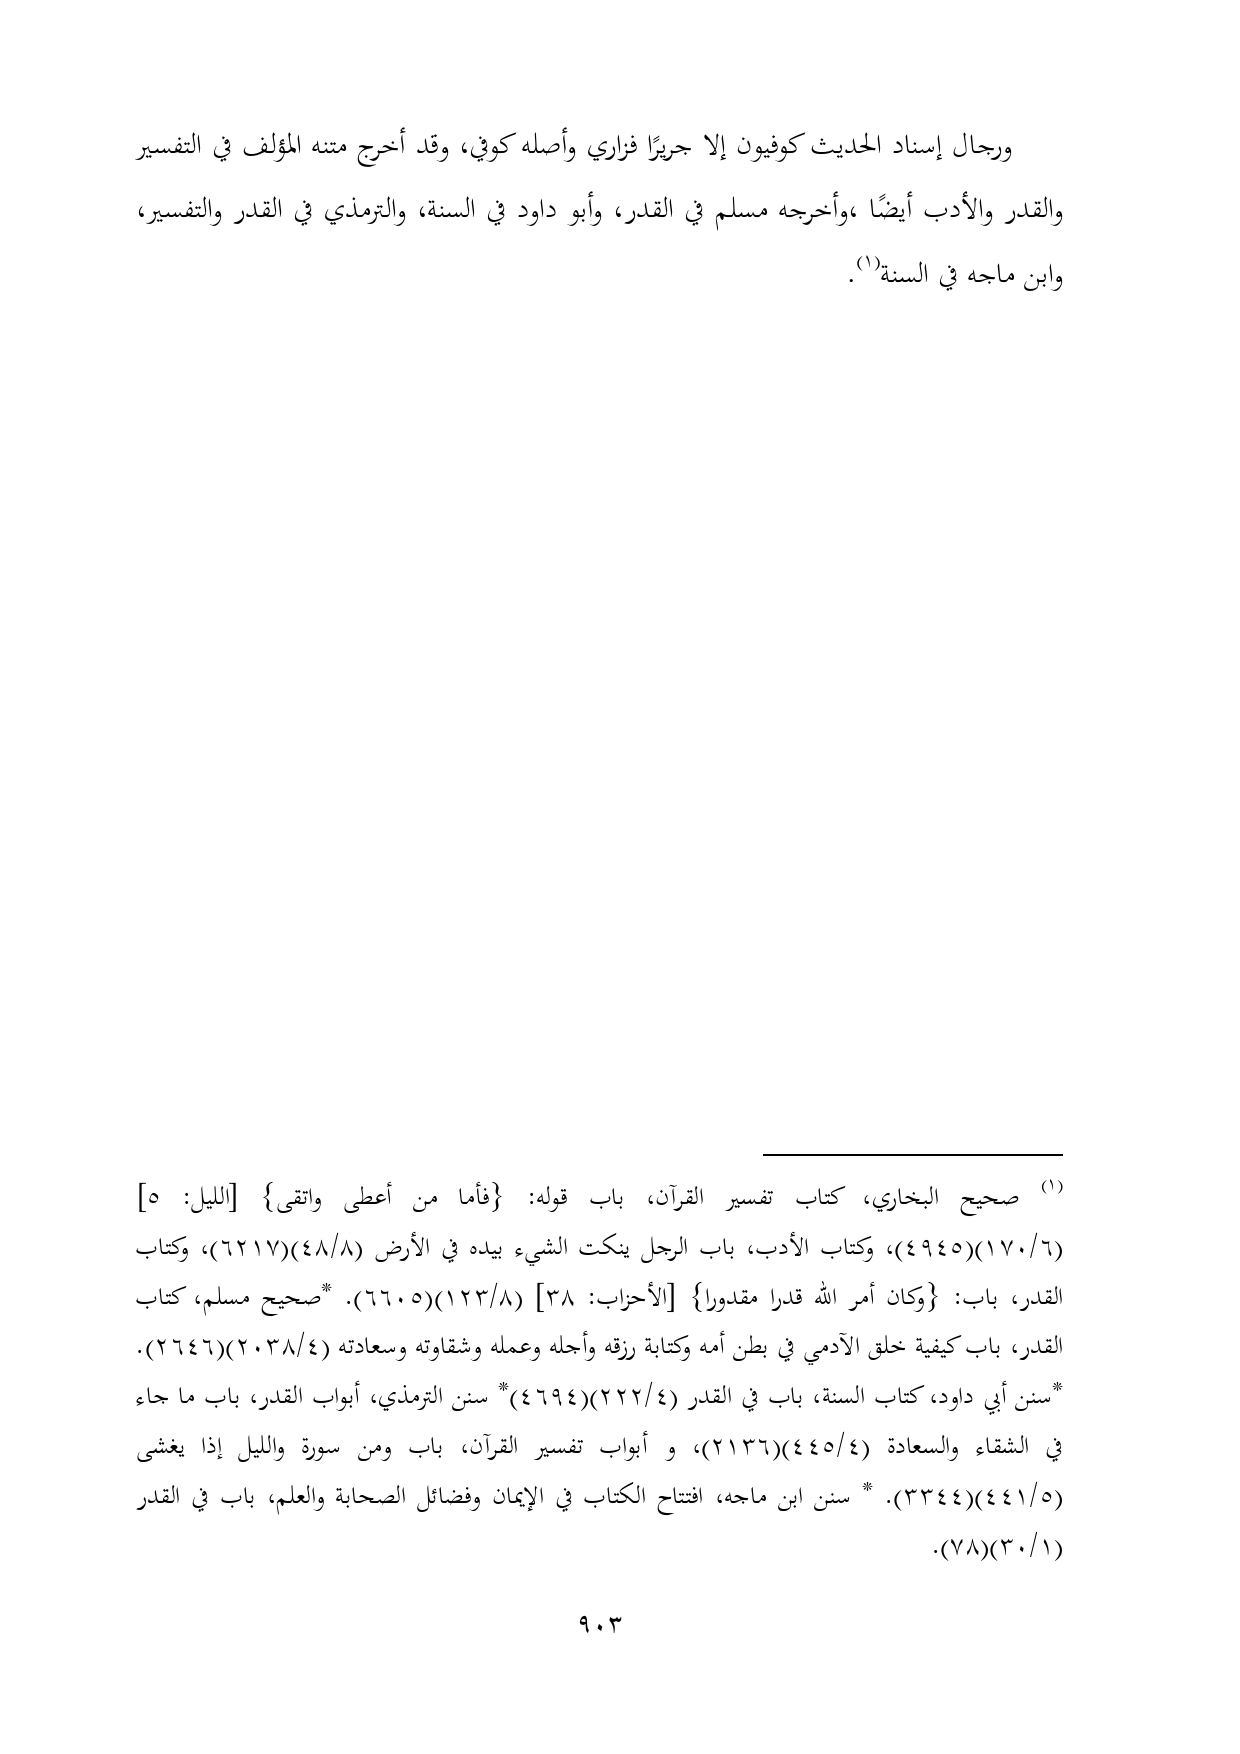 ورجال إسناد الحديث كوفيون إلا جريرًا فزاري وأصله كوفي، وقد أخرج متنه المؤلف في التفسير
والقدر والأدب أيضًا ،وأخرجه مسلم في القدر، وأبو داود في السنة، والترمذي في القدر والتفسير،
وابن ماجه في السنة(١).
(١) صحيح البخاري، كتاب تفسير القرآن، باب قوله: {فأما من أعطى واتقى} [الليل: ٥]
(١٧٠/٦)(٤٩٤٥)، وكتاب الأدب، باب الرجل ينكت الشيء بيده في الأرض (٤٨/٨)(٦٢١٧)، وكتاب
القدر، باب: {وكان أمر الله قدرا مقدورا} [الأحزاب: ٣٨] (١٢٣/٨)(٦٦٠٥). *صحيح مسلم، كتاب
القدر، باب كيفية خلق الآدمي في بطن أمه وكتابة رزقه وأجله وعمله وشقاوته وسعادته (٢٠٣٨/٤)(٢٦٤٦).
*سنن أبي داود، كتاب السنة، باب في القدر (٢٢٢/٤)(٤٦٩٤)* سنن الترمذي، أبواب القدر، باب ما جاء
في الشقاء والسعادة (٤٤٥/٤)(٢١٣٦)، و أبواب تفسير القرآن، باب ومن سورة والليل إذا يغشى
(٤٤١/٥)(٣٣٤٤). * سنن ابن ماجه، افتتاح الكتاب في الإيمان وفضائل الصحابة والعلم، باب في القدر
(٣٠/١)(٧٨).
٩٠٣